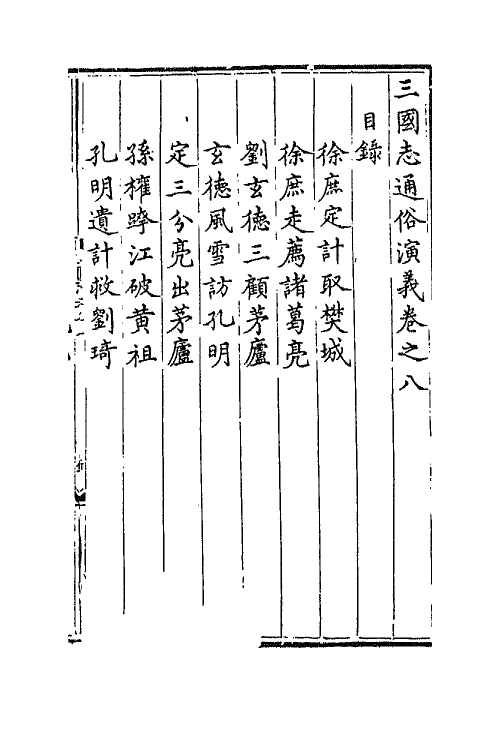 三國志通俗演義卷之八
目錄
徐庶定計取樊城
徐庶走薦諸葛亮
劉玄德三顧茅廬
玄德風雪訪孔明
定三分亮出茅廬
孫權跨江破黄祖
孔明遺計救劉琦